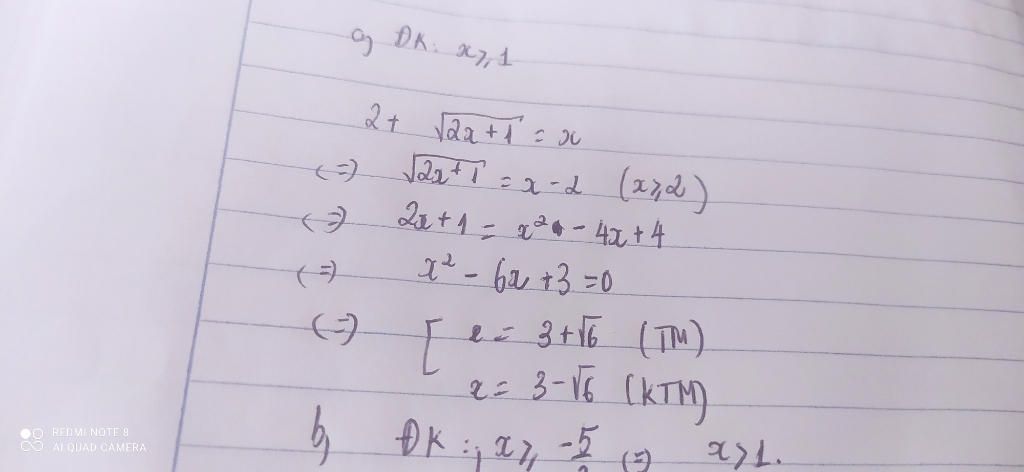 a, ĐK: x ≥ 1
2 + √(2x + 1) = x
(=) √(2x + 1) = x - 2 (x ≥ 2)
(=) 2x + 1 = x² - 4x + 4
(=) x² - 6x + 3 = 0
(=) [ x = 3 + √6 (TM)
x = 3 - √6 (KTM)
b, ĐK: x ≥ -5 (=) x > 1.
REDMI NOTE 8
AI QUAD CAMERA